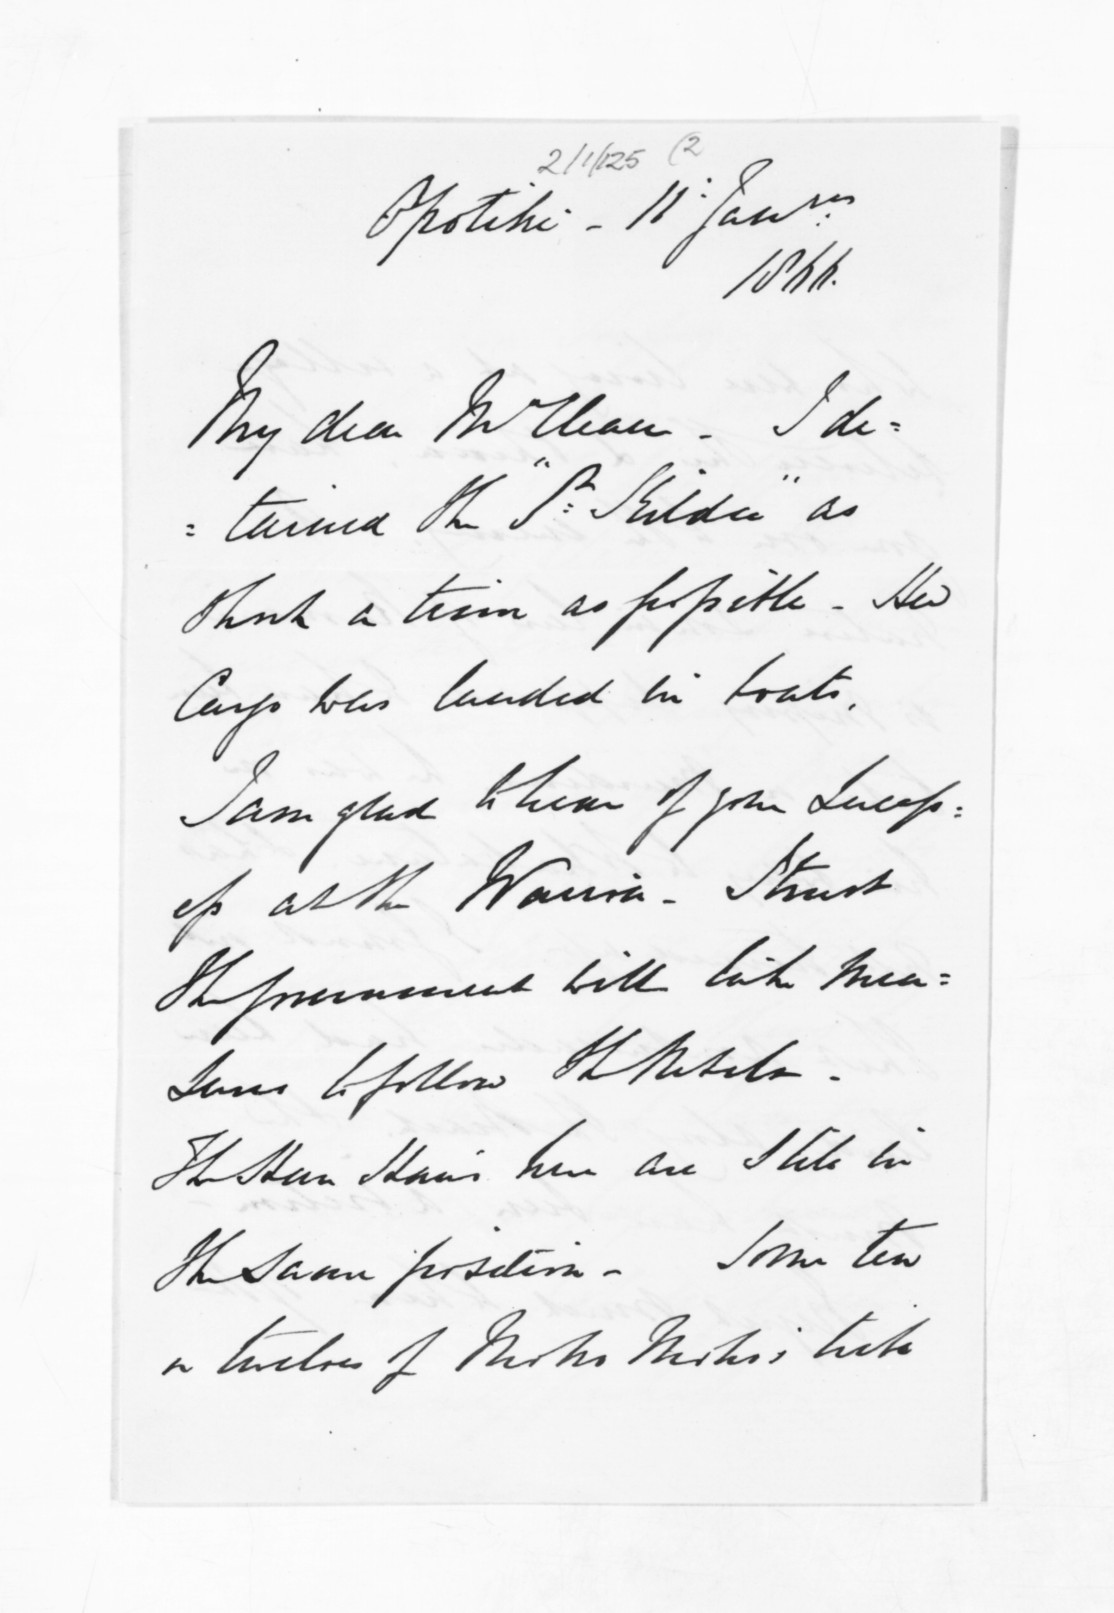 2/1/125 (2
Opotiki - 11: Janry
1866.
My dear McLean - I de=
=tained the "St: Kilda" as
short a time as possible - Her
Cargo was landed in boats.
I am glad to hear of your success=
es at the Wairoa - I trust
the Government will take mea=
sures to follow the Rebels -
The Hau Haus here are still in
the same position - Some ten
or twelve of Moko Moko's tribe